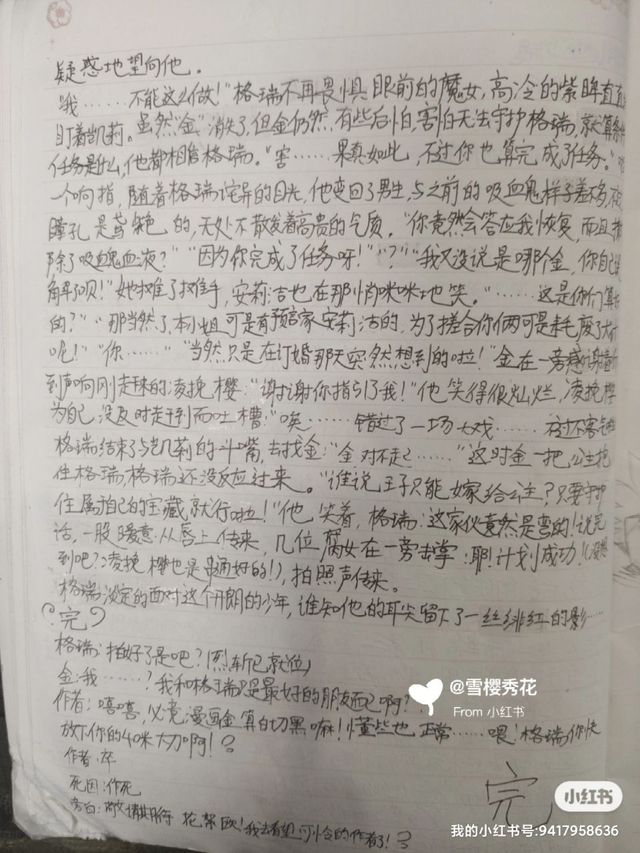 疑惑地望向他。
"我……不能这么做!"格瑞不再畏惧眼前的魔女,高冷的紫眸直直
盯着凯莉。虽然"金"消失了,但金仍然有些后怕,害怕无法守护格瑞,就算
任务是什么,他都相信格瑞。"害……果真如此,不过你也算完成了任务。"
一个响指,随着格瑞诧异的目光,他变回了男生,与之前的吸血鬼样子差
瞳孔是 色的,无处不散发着高贵的气质。"你竟然会答应我恢复,而且
除了吸血鬼血液?""因为你完成了任务呀!""?""我又没说是哪个金,你自己
解呗!"她摊了摊手,安莉洁也在那悄咪咪地笑。"……这是你们算
的?""那当然了,本小姐可是有预言家安莉洁的,为了撮合你俩可是耗废了
呢!""你……""当然只是在订婚那天突然想到的啦!"金在一旁感谢
到声响刚走来的凌挽樱:"谢谢你指引了我!"他笑得很灿烂,凌挽樱
为自己没及时走到而吐槽:"唉……错过了一场大戏……
格瑞结束了与凯莉的斗嘴,去找金:"金,对不起……"这时金一把公主抱
住格瑞,格瑞还没反应过来。"谁说王子只能嫁给公主?只要守护
住属于自己的宝藏,就行啦!"他笑着,格瑞:这家伙竟然是弯的!说完
话,一股暖意从唇上传来,几位腐女在一旁击掌:耶!计划成功!
到吧?凌挽樱也是 好的!),拍照声传来。
格瑞淡定的面对这个开朗的少年,谁知他的耳尖留下了一丝绯红的影……
完
格瑞:拍好了是吧?(烈斩已就位)
金:我……?我和格瑞只是最好的朋友而已啊?
作者:嘻嘻,必竟漫画金算白切黑嘛!懂些也正常……喂!格瑞你快
放下你的40米大刀啊!?
作者:卒
死因:作死
旁白:敬请期待花絮欧!我去看望可怜的作者了!?
完
@雪樱秀花
From 小红书
小红书
我的小红书号:9417958636